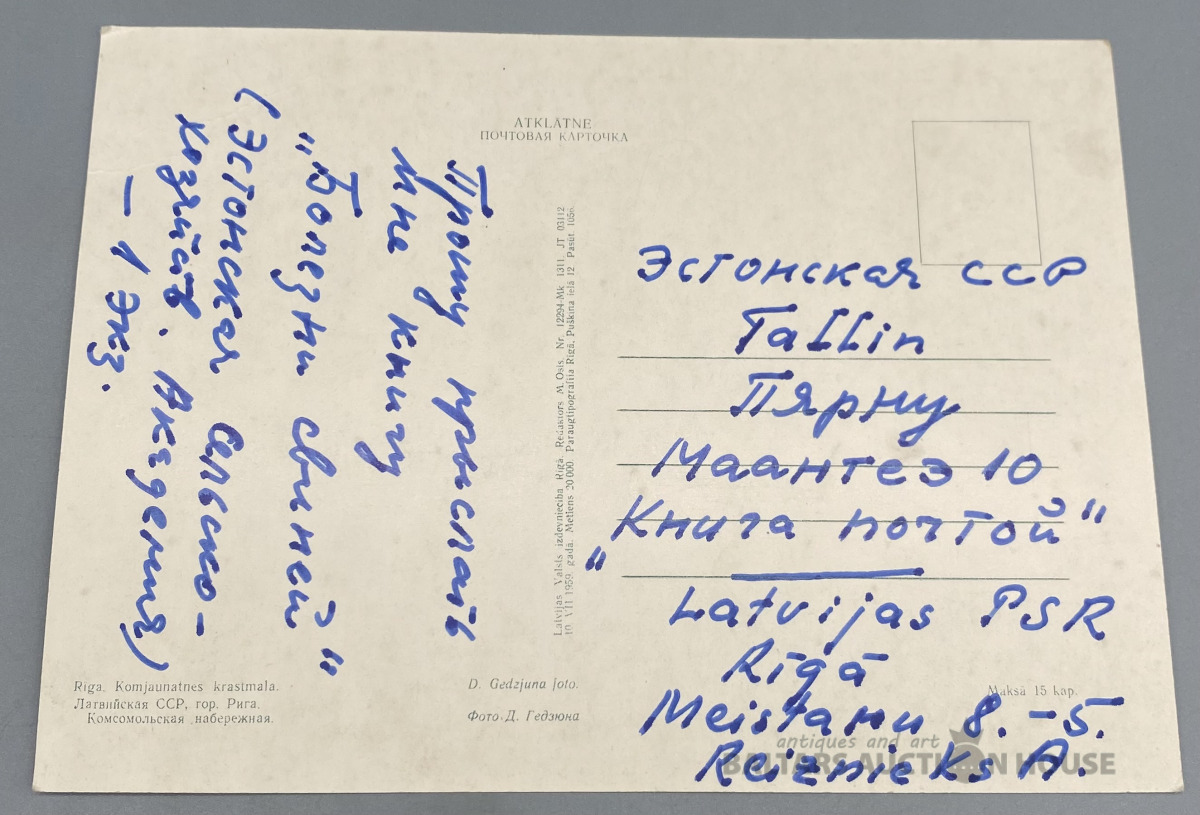 ATKLĀTNE
ПОЧТОВАЯ КАРТОЧКА
Прошу прыслать
мне книгу
"Болезни свыней"
(Эстонская сельско-
хозяйств. Академия)
– 1 экз.
Latvijas Valsts izdevniecība Rīgā. Redaktors M. Osis. Nr. 12294-Mk 1311. JT 03112
10. VII 1959. gadā. Metiens 20 000. Paraugtipogrāfija Rīgā, Puškina ielā 12. Pasūt. 1056.
Эстонская ССР
Tallin
Пярну
Маантеэ 10
"Книга почтой"
Latvijas PSR
Rīgā
Meistaru 8. – 5.
Reiznieks A.
Rīga. Komjaunatnes krastmala.
Латвийская ССР, гор. Рига.
Комсомольская набережная.
D. Gedzjuna foto.
Фото Д. Гедзюна
Maksā 15 kap.
antiques and art
BALTARS AUCTION HOUSE